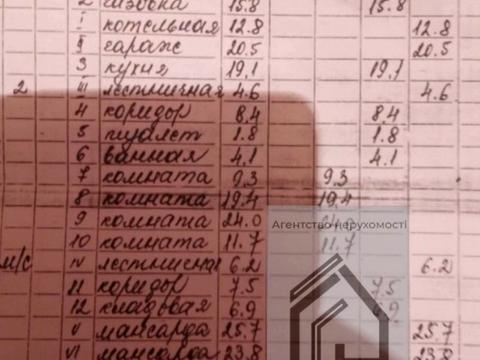 15.8 15.8
I котельная 12.8 12.8
II гараж 20.5 20.5
3 кухня 19,1 19,1
2 III лестничная 4.6 4.6
4 коридор 8,4 8,4
5 туалет 1.8 1.8
6 ванная 4,1 4,1
7 комната 9,3 9,3
8 комната 19,4 19,4
9 комната 24.0
Агентство нерухомості
10 комната 11.7 11.7
м/с IV лестничная 6.2 6.2
11 коридор 7.5 7.5
12 кладовая 6.9 6.9
V мансарда 25.7 25.7
VI мансарда 23.8 23.8